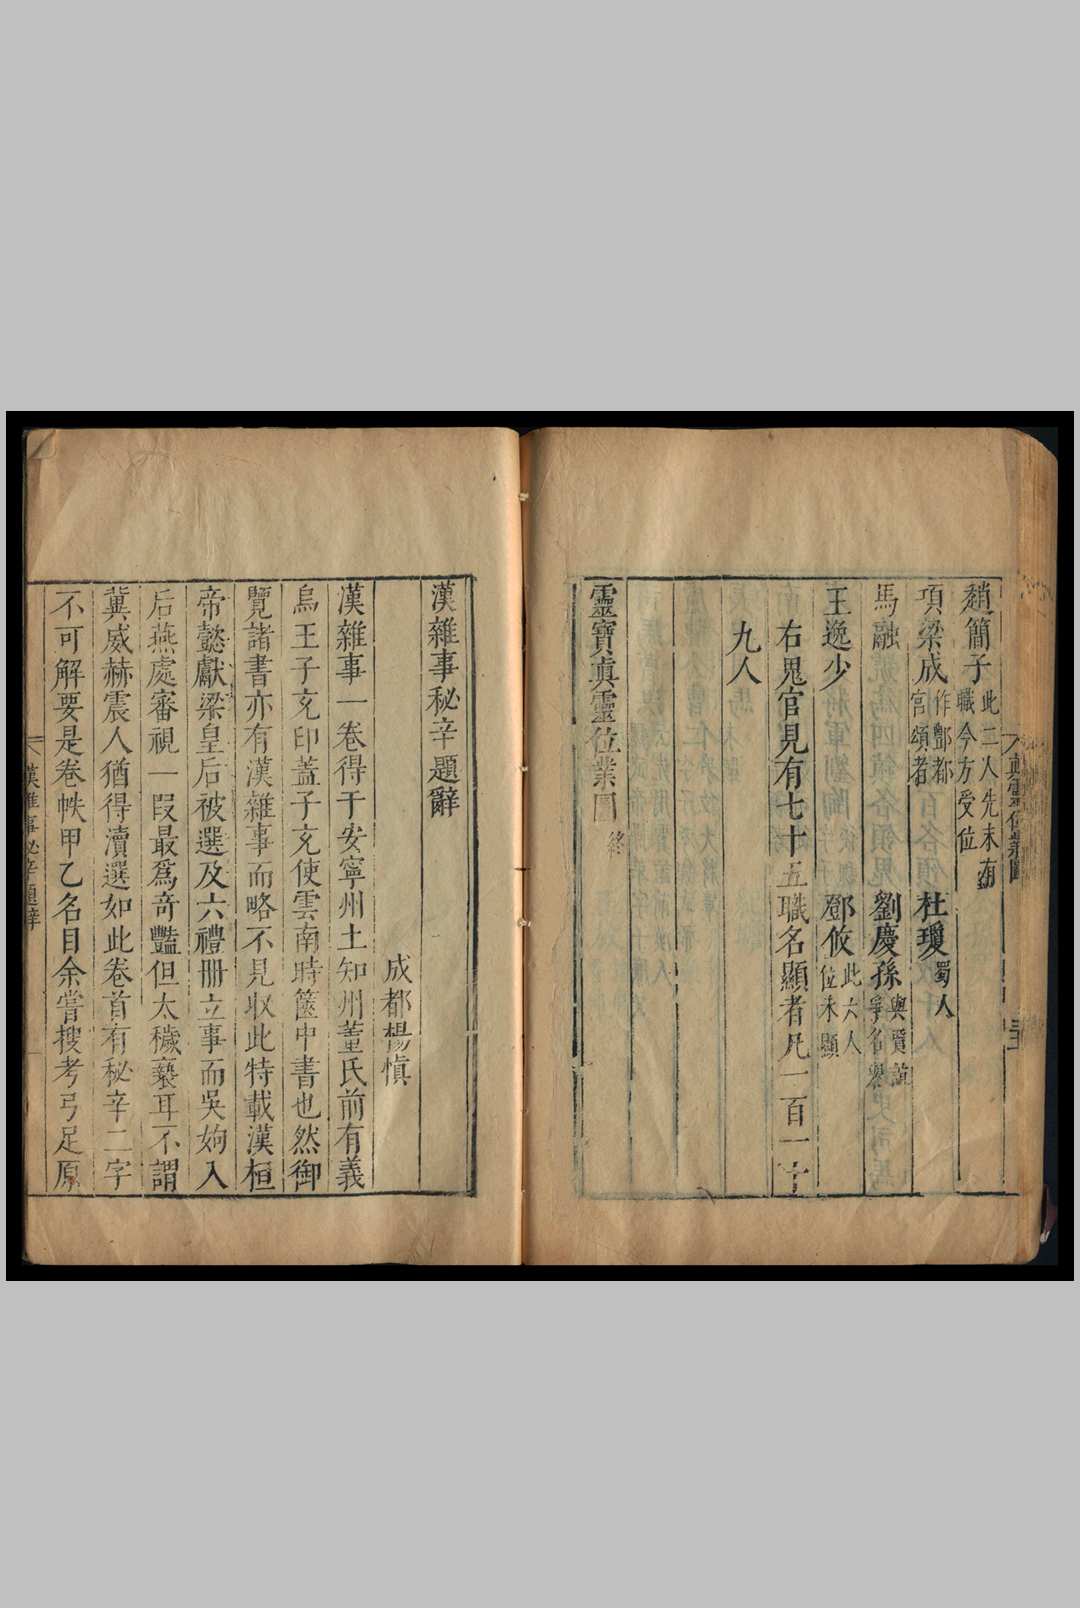 趙簡子此二人先未有職今方受位
項梁成作酆都宮頌者 杜瓊蜀人
馬融 劉慶孫與賈謐爭名譽
王逸少 鄧攸此六人位未顯
右鬼官見有七十五職名顯者凡一百一十
九人
靈寶真靈位業圖終
真靈位業圖
漢雜事秘辛題辭
成都楊慎
漢雜事一卷得于安寧州土知州董氏前有義
烏王子充印蓋子充使雲南時篋中書也然御
覽諸書亦有漢雜事而略不見收此特載漢桓
帝懿獻梁皇后被選及六禮冊立事而吳姁入
后燕處審視一段最爲奇豔但太穢褻耳不謂
冀威赫震人猶得瀆選如此卷首有秘辛二字
不可解要是卷帙甲乙名目余嘗搜考弓足原
漢雜事秘辛題辭